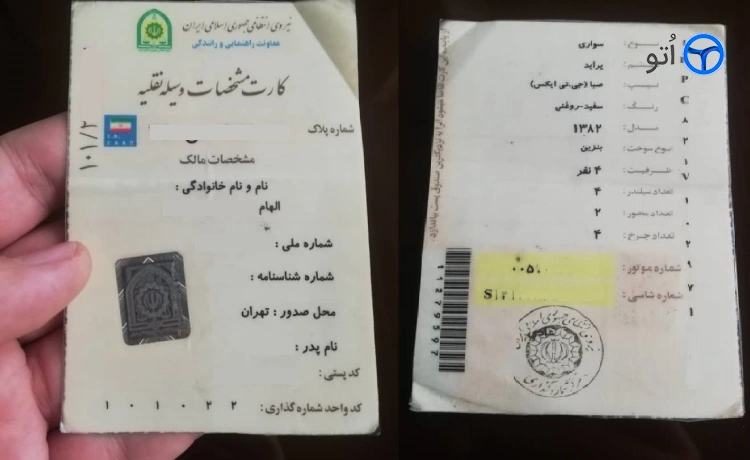 نیروی انتظامی جمهوری اسلامی ایران
معاونت راهنمایی و رانندگی
کارت مشخصات وسیله نقلیه
شماره پلاک
۱۰۱/۲
مشخصات مالک
نام و نام خانوادگی :
الهام
شماره ملی :
شماره شناسنامه :
محل صدور : تهران
نام پدر :
کد پستی :
کد واحد شماره گذاری : ۱ ۰ ۱ ۰ ۲ ۲
اُتو
نوع : سواری
سیستم : پراید
تیپ : صبا(جی.تی ایکس)
رنگ : سفید-روغنی
مدل : ۱۳۸۲
نوع سوخت : بنزین
ظرفیت : ۴ نفر
تعداد سیلندر : ۴
تعداد محور : ۲
تعداد چرخ : ۴
شماره موتور : ۰۰۵
شماره شاسی : S
11279597